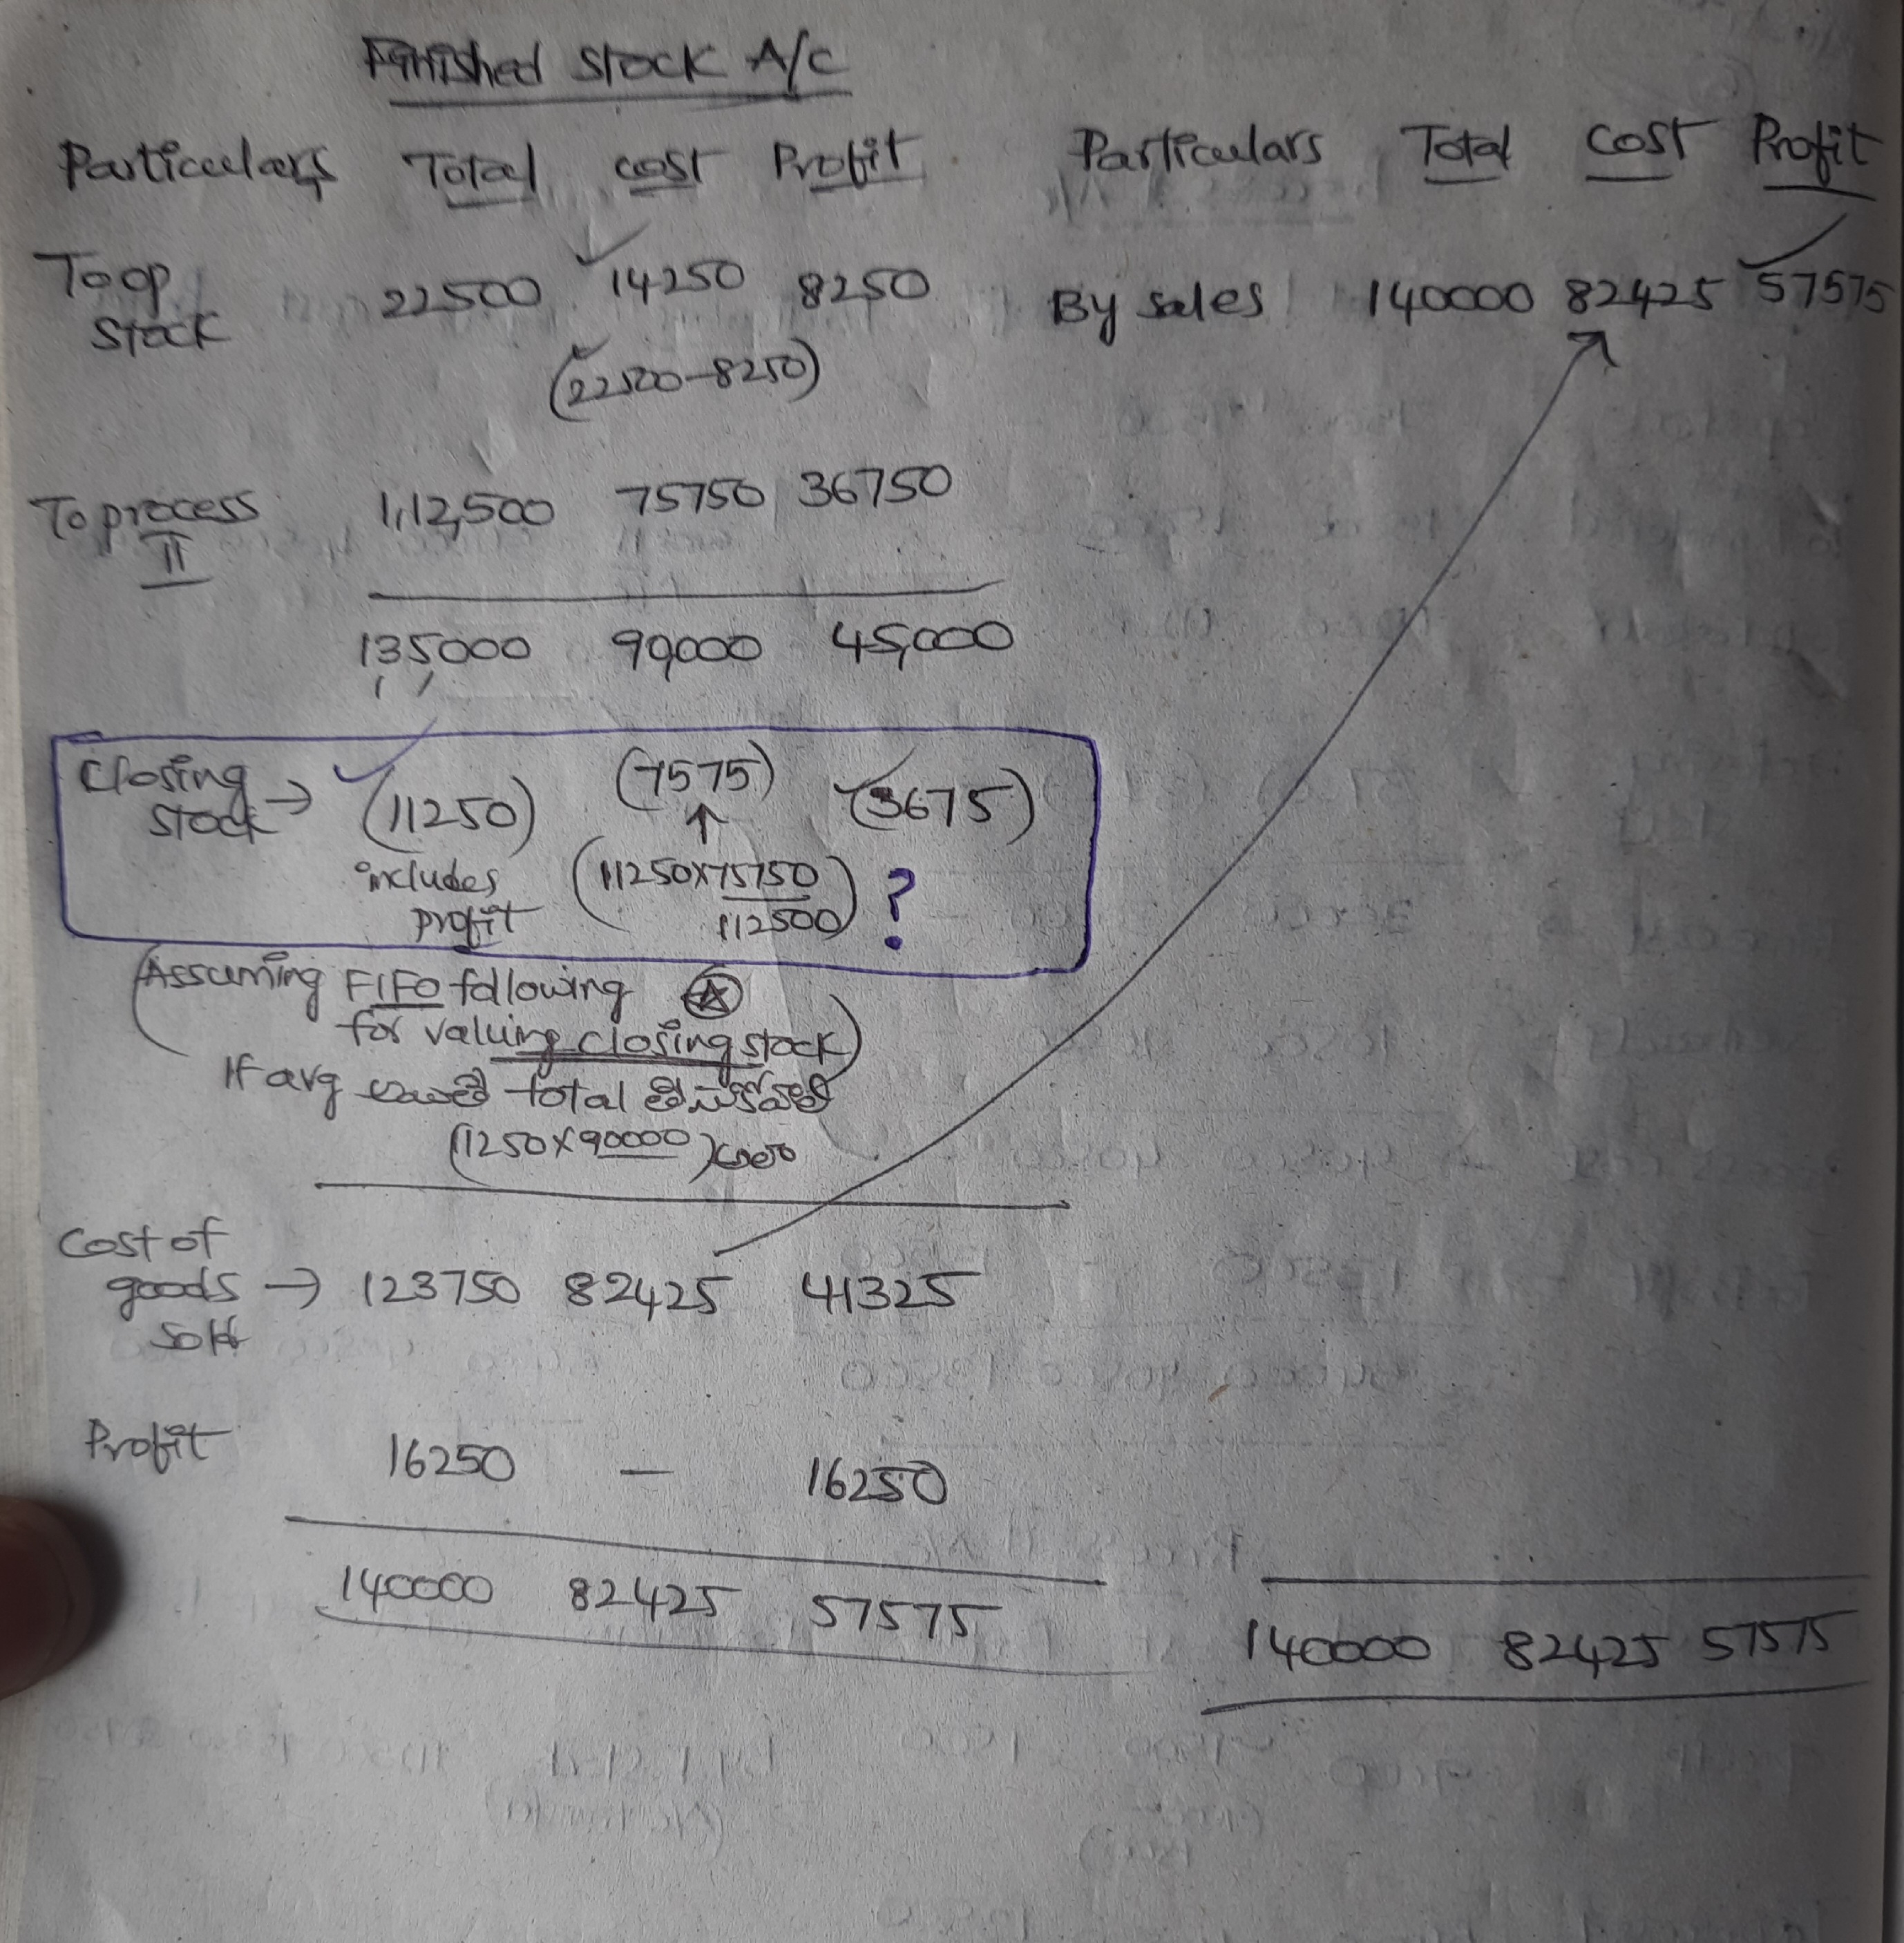 Finished Stock A/C
Particulars Total cost Profit Particulars Total cost Profit
To op 22500 14250 8250 By sales 140000 82425 57575
stock
(22500-8250)
To process 1,12,500 75750 36750
II
135000 90,000 45,000
Closing
stock → (11250) (7575) (3675)
↑
includes (11250×75750
profit 112500) ?
(Assuming FIFO following
for valuing closing stock)
If avg అయితే total తీసుకోవాలి
(11250×90000)
Cost of
goods → 123750 82425 41325
sold
Profit 16250 — 16250
140000 82425 57575 140000 82425 57575